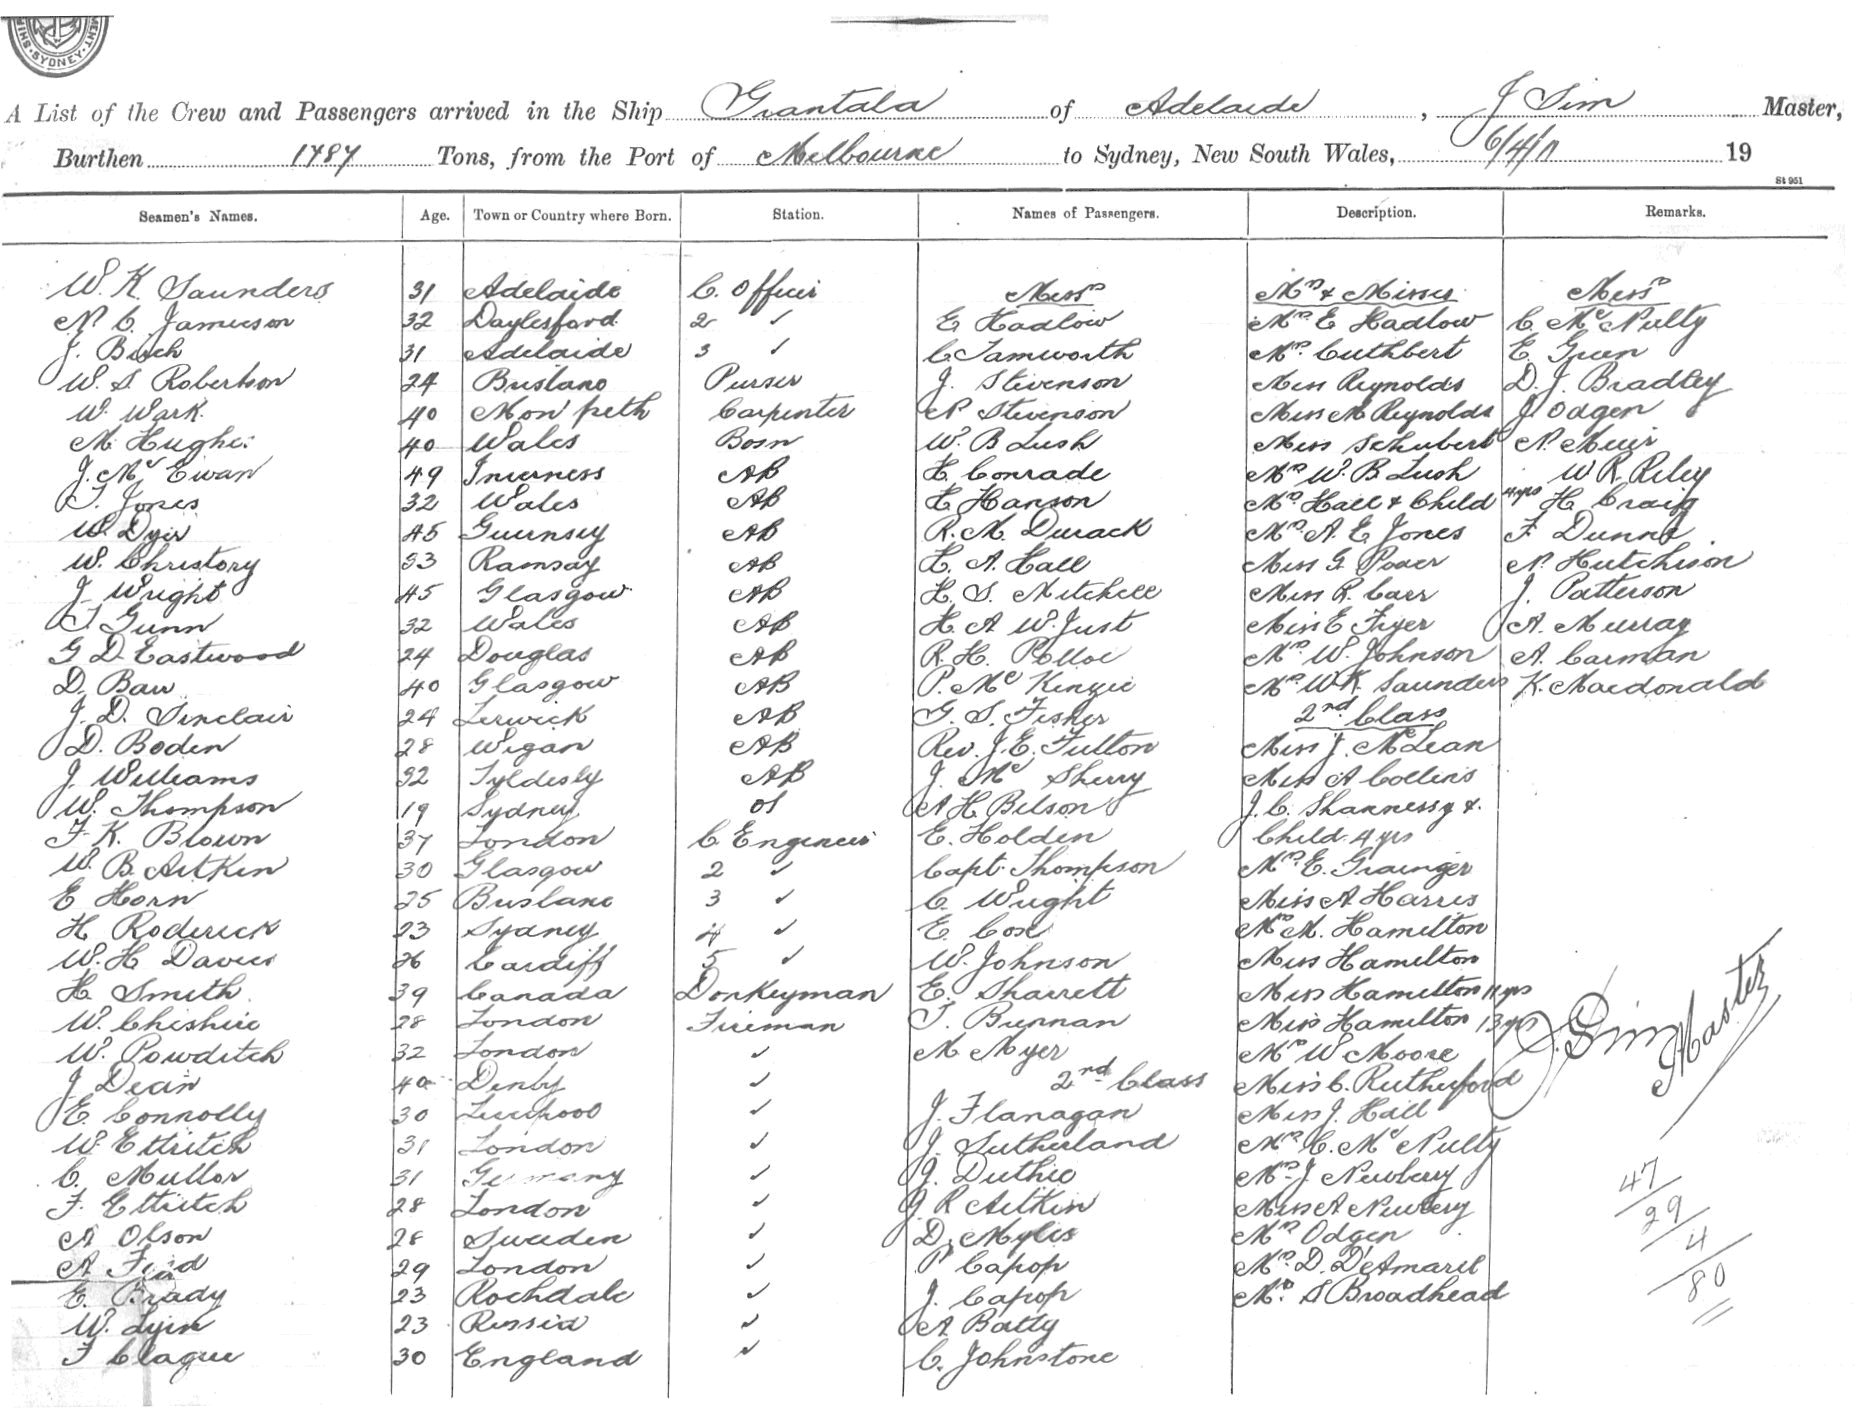 SYDNEY
A List of the Crew and Passengers arrived in the Ship Grantala of Adelaide, J Sim Master,
Burthen 1787 Tons, from the Port of Melbourne to Sydney, New South Wales, 6/4/11 19
St 951
Seamen's Names. Age. Town or Country where Born. Station. Names of Passengers. Description. Remarks.
W. K. Saunders 31 Adelaide C. Officer Messrs Mrs & Misses Messrs
N. C. Jamieson 32 Daylesford 2 ✓ E Hadlow Mrs E Hadlow C. McNulty
J. Birch 31 Adelaide 3 ✓ C Tamworth Mrs Cuthbert E. Green
W. S. Robertson 24 Brisbane Purser J. Stevenson Miss Reynolds D. J. Bradley
W. Wark 40 Mon peth Carpenter N. Stevenson Miss M Reynolds J. Odgen
M. Hughes 40 Wales Bosn W. B Lush Miss Schubert N. Muir
J. McEwan 49 Inverness AB H Conrade Mrs W. B Lush W R. Riley
T. Jones 32 Wales AB H Hanson Mrs Hall & Child 4 yrs H Craig
W. Dyer 45 Guernsey AB R. M. Durack Mrs A. E. Jones F Dunne
W. Christory 53 Ramsay AB H. A. Hall Miss G Power N. Hutchison
J. Wright 45 Glasgow AB H. S. Mitchell Miss R. Carr J. Patterson
T Gunn 32 Wales AB H. A W. Just Miss E Fryer A. Murray
G D Eastwood 24 Douglas AB R. H. Mrs W. Johnson A. Carman
D. Barr 40 Glasgow AB P. McKenzie Mrs W. K. Saunders K. Macdonald
J. D. Sinclair 24 Lerwick AB G. S. Fisher 2nd Class
D. Boden 28 Wigan AB Rev. J. E. Fulton Miss J. McLean
J. Williams 32 Tyldesly AB J. McSherry Miss A Collins
W. Thompson 19 Sydney OS A H Bilson J. C. Shannessy &
F. K. Brown 37 London C Engineer E. Holden Child 4 yrs
W. B. Aitkin 30 Glasgow 2 ✓ Capt. Thompson Mrs E. Grainger
E Horn 25 Brisbane 3 ✓ C. Wright Miss A Harris
H Roderick 23 Sydney 4 ✓ E. Cox Mrs M. Hamilton
W. H Davies 26 Cardiff 5 ✓ W. Johnson Miss Hamilton
H Smith 39 Canada Donkeyman E. Sharrett Miss Hamilton 11 yrs
W. Cheshire 28 London Fireman T. Brennan Miss Hamilton 13 yrs
W. Powditch 32 London ✓ M Myer Mrs W Moore
J Dean 40 Denby ✓ 2nd Class Miss C. Rutherford
E Connolly 30 Liverpool ✓ J. Flanagan Miss J. Hall
W. Ettritch 31 London ✓ J. Sutherland Mrs C. McNulty
C. Mullor 31 Germany ✓ J. Duthie Mrs J Newbery
F. Ettritch 28 London ✓ J R Aitkin Miss A Newbery
A Olson 28 Sweden ✓ D. Myles Mrs Odgen
A 29 London ✓ P Capop Mrs D. DeAmarel
E. Brady 23 Rochdale ✓ J. Capop Mrs S Broadhead
W. 23 Russia ✓ A Batty
T Clague 30 England ✓ C. Johnstone
J. Sim Master
47
29
4
80